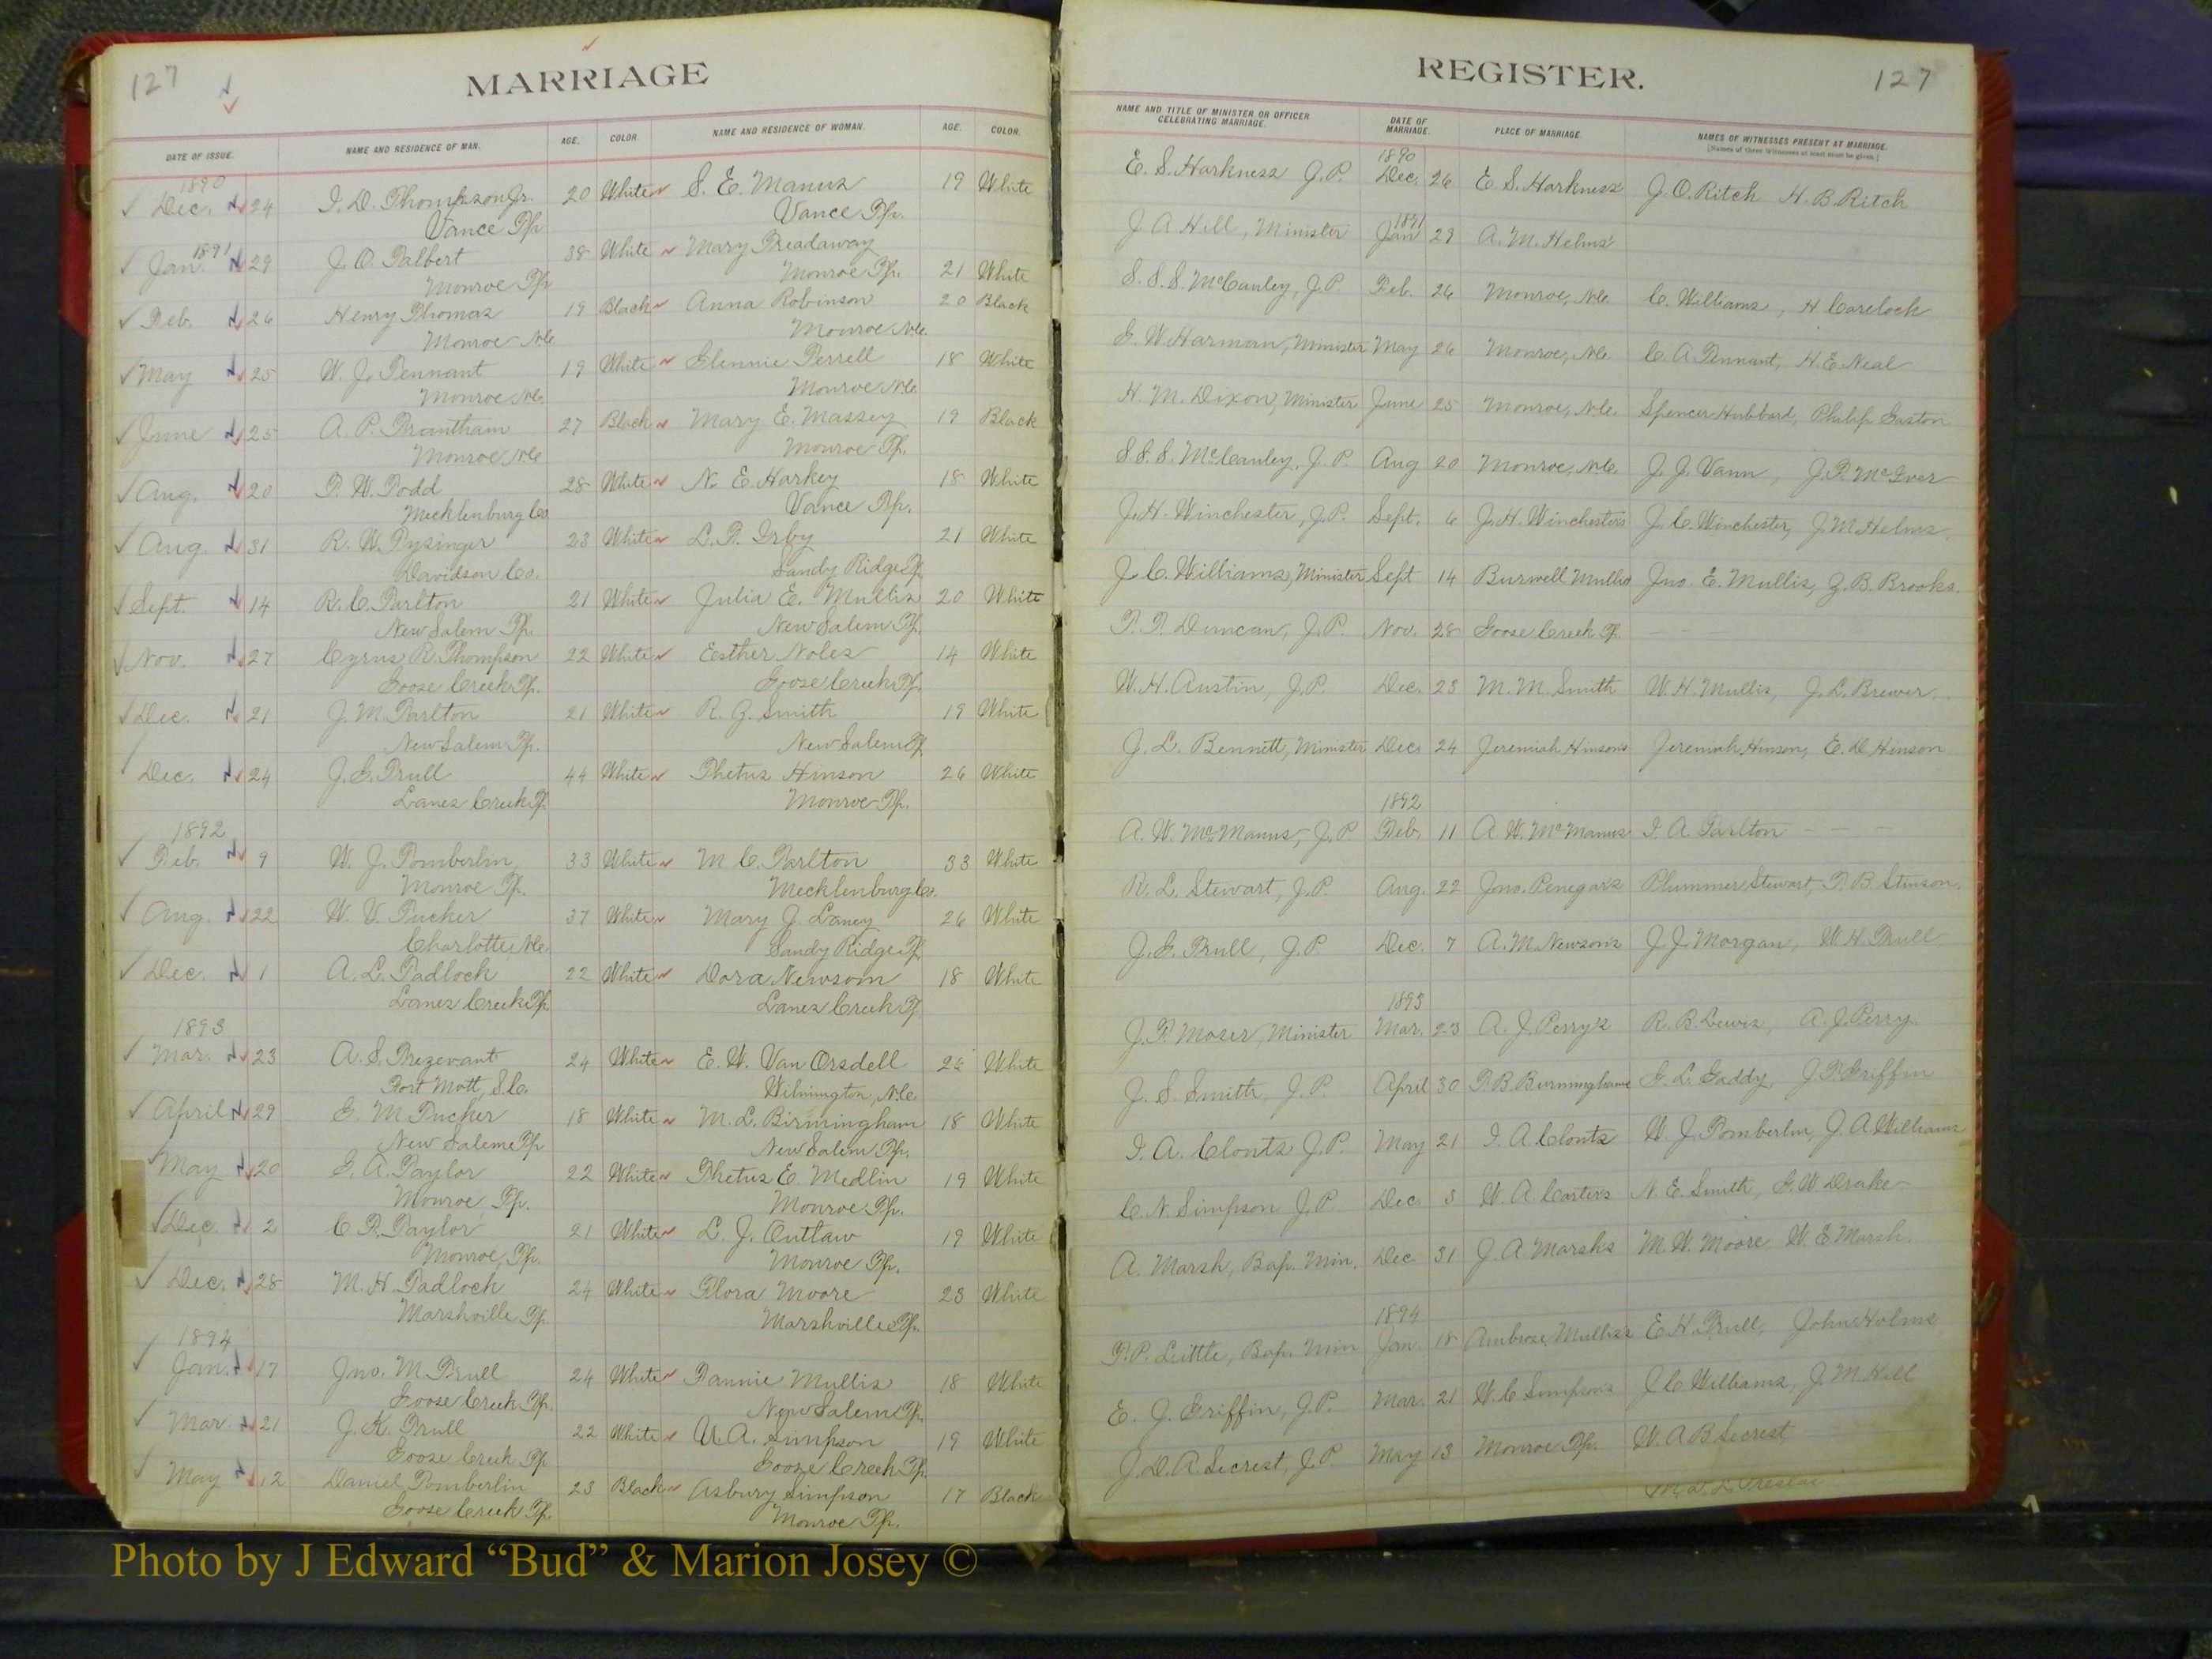 127
MARRIAGE
DATE OF ISSUE. NAME AND RESIDENCE OF MAN. AGE. COLOR. NAME AND RESIDENCE OF WOMAN. AGE. COLOR.
1890
Dec. 24 I. D. Thompson Jr. 20 White S. E. Manus 19 White
Vance Tp. Vance Tp.
1891
Jan. 29 J. O. Talbert 38 White Mary Treadaway 21 White
Monroe Tp. Monroe Tp.
Feb. 26 Henry Thomas 19 Black Anna Robinson 20 Black
Monroe N.C. Monroe N.C.
May 25 W. J. Tennant 19 White Glennie Terrell 18 White
Monroe N.C. Monroe N.C.
June 25 A. P. Trantham 27 Black Mary E. Massey 19 Black
Monroe N.C. Monroe Tp.
Aug. 20 T. W. Todd 28 White N. E. Harkey 18 White
Mecklenburg Co. Vance Tp.
Aug. 31 R. W. Tysinger 23 White L. P. Irby 21 White
Davidson Co. Sandy Ridge Tp.
Sept. 14 R. C. Tarlton 21 White Julia E. Mullis 20 White
New Salem Tp. New Salem Tp.
Nov. 27 Cyrus R. Thompson 22 White Esther Noles 14 White
Goose Creek Tp. Goose Creek Tp.
Dec. 21 J. M. Tarlton 21 White R. Z. Smith 19 White
New Salem Tp. New Salem Tp.
Dec. 24 J. E. Trull 44 White Thetus Hinson 26 White
Lanes Creek Tp. Monroe Tp.
1892
Feb. 9 W. J. Tomberlin 33 White M. C. Tarlton 33 White
Monroe Tp. Mecklenburg Co.
Aug. 22 W. V. Tucker 37 White Mary J. Laney 26 White
Charlotte, N.C. Sandy Ridge Tp.
Dec. 1 A. L. Tadlock 22 White Dora Newsom 18 White
Lanes Creek Tp. Lanes Creek Tp.
1893
Mar. 23 A. S. Trezevant 24 White E. W. Van Orsdell White
Fort Mott, S.C. Wilmington, N.C.
April 29 E. M. Tucker 18 White M. L. Birmingham 18 White
New Salem Tp New Salem Tp.
May 20 G. A. Taylor 22 White Thetus E. Medlin 19 White
Monroe Tp. Monroe Tp.
Dec. 2 C. T. Taylor 21 White L. J. Outlaw 19 White
Monroe Tp. Monroe Tp.
Dec. 28 M. H. Tadlock 24 White Flora Moore 23 White
Marshville Tp Marshville Tp.
1894
Jan. 17 Jno. M. Trull 24 White Fannie Mullis 18 White
Goose Creek Tp. New Salem Tp.
Mar. 21 J. K. Trull 22 White U. A. Simpson 19 White
Goose Creek Tp Goose Creek Tp.
May 12 Daniel Tomberlin 23 Black Asbury Simpson 17 Black
Goose Creek Tp Monroe Tp.
REGISTER.
127
NAME AND TITLE OF MINISTER OR OFFICER CELEBRATING MARRIAGE. DATE OF MARRIAGE. PLACE OF MARRIAGE. NAMES OF WITNESSES PRESENT AT MARRIAGE.
[Names of three Witnesses at least must be given.]
1890
E. S. Harkness J. P. Dec. 26 E. S. Harkness' J. O. Ritch H. B. Ritch
1891
J A Hill, Minister Jan 29 A. M. Helms'
S. S. S. McCauley, J. P. Feb. 26 Monroe, N.C. C. Williams, H Carelock
G. W. Harman, Minister May 26 Monroe, N.C. C. A. Tennant, H. E. Neal
H. M. Dixon, Minister June 25 Monroe, N.C. Spencer Hubbard, Philip Gaston
S. S. S. McCauley, J. P. Aug 20 Monroe, N.C. J. J. Vann, J. P. McIver
J. H. Winchester, J. P. Sept. 6 J. H. Winchesters J. C. Winchester, J. M. Helms.
J. C. Williams, Minister Sept 14 Burwell Mullis Jno. E. Mullis, Z. B. Brooks.
T. T. Duncan, J. P. Nov. 28 Goose Creek Tp. — —
W. H. Austin, J. P. Dec. 23 M. M. Smith W. H. Mullis, J. L. Brewer.
J. L. Bennett, Minister Dec. 24 Jeremiah Hinsons Jeremiah Hinson, E. D Hinson
1892
A. W. McManus, J. P Feb. 11 A. W. McManus I. A. Tarlton — —
R. L. Stewart, J. P. Aug. 22 Jno. Penegars Plummer Stewart, T. B. Stinson.
J. E. Trull, J. P. Dec. 7 A. M. Newsom's J. J. Morgan, W. H. Trull
1893
J. F. Moser, Minister Mar. 23 A. J. Perry's R. B. Lewis A. J. Perry
J. S. Smith, J. P. April 30 G. L. Gaddy, J. P. Griffin
I. A. Clontz J. P. May 21 I. A. Clontz W. J. Tomberlin, J. A. Williams
C. N. Simpson J. P. Dec. 3 W. A. Carters N. E. Smith, G. W. Drake
A. Marsh, Bap. Min. Dec. 31 J. A Marshs M. W. Moore, W. E Marsh.
1894
P. P. Little, Bap. Min Jan. 18 Ambrose Mullis's E. H. Trull, John Helms
E. J. Griffin, J. P. Mar. 21 W. C. Simpsons J. C. Williams, J. M. Hill
J. D. A. Secrest, J. P. May 13 Monroe Tp. W. A. B. Secrest,
Photo by J Edward “Bud” & Marion Josey ©